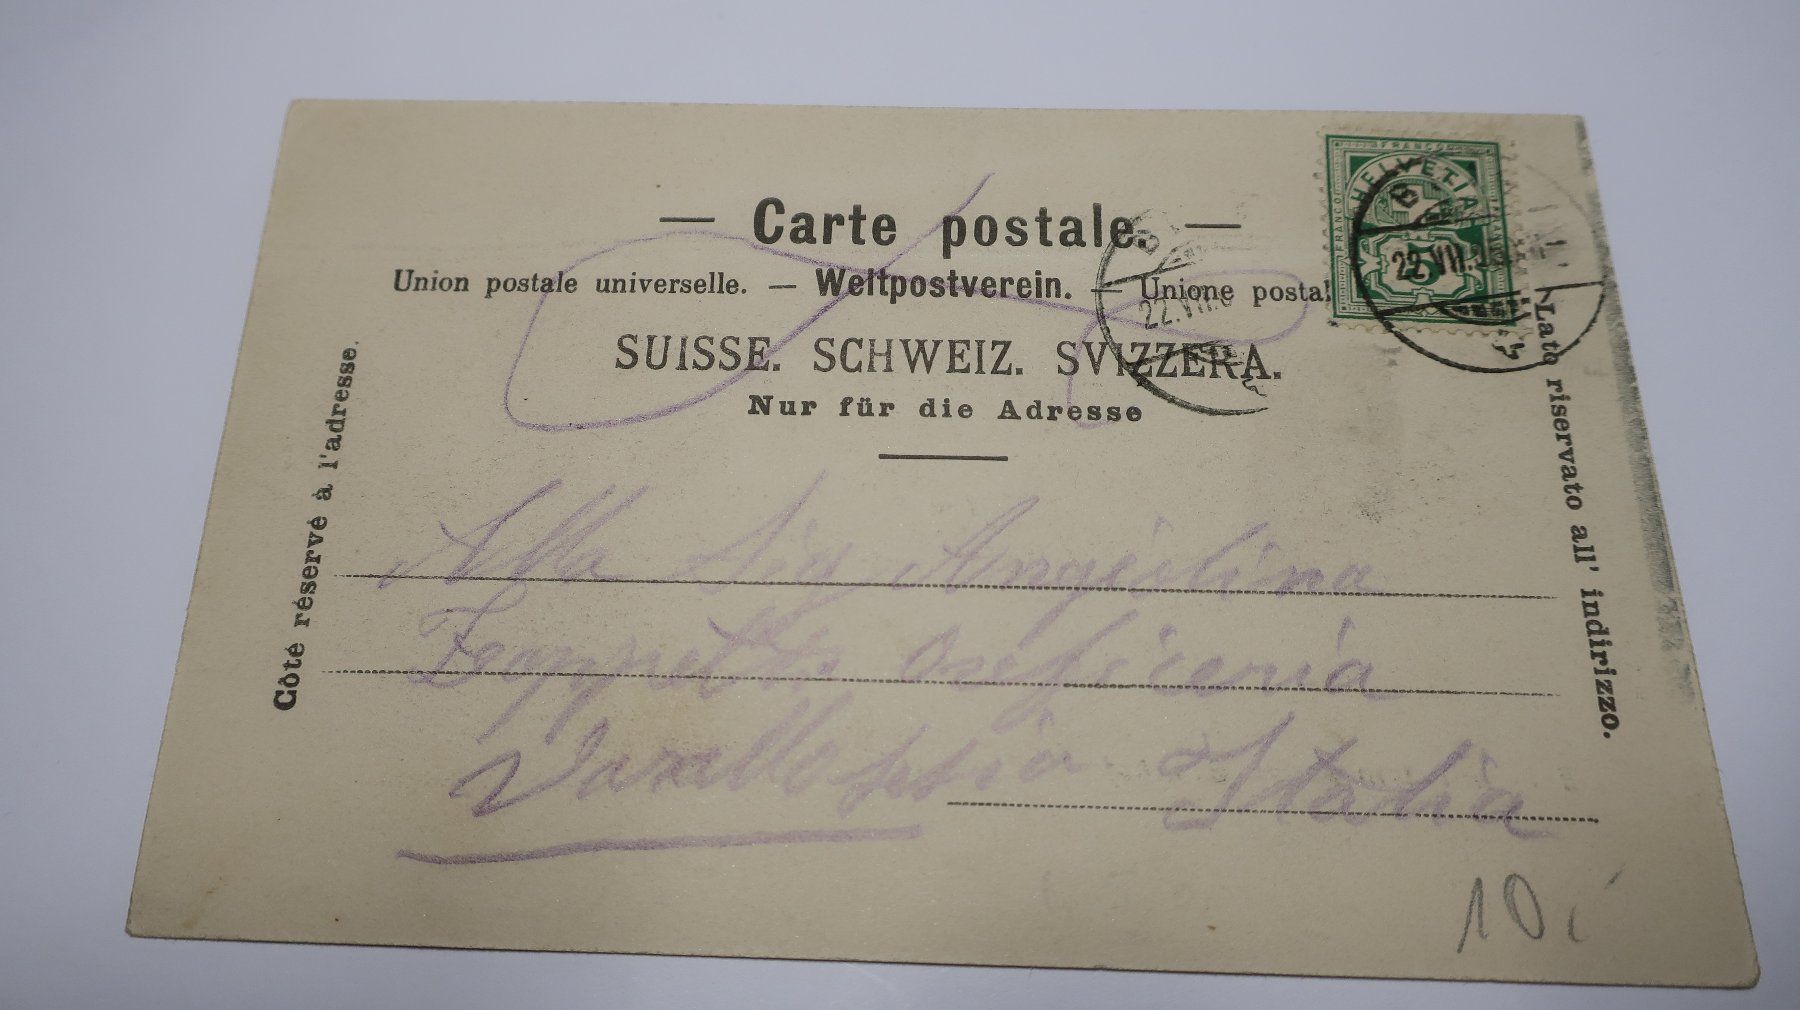 — Carte postale. —
Union postale universelle. — Weltpostverein. — Unione postal
SUISSE. SCHWEIZ. SVIZZERA.
Nur für die Adresse
Côté réservé à l'adresse.
Lato riservato all' indirizzo.
FRANCO
HELVETIA
FRANCO
5
22.VII.
22.VII.
Alla Sig Angiolina
Italia
10